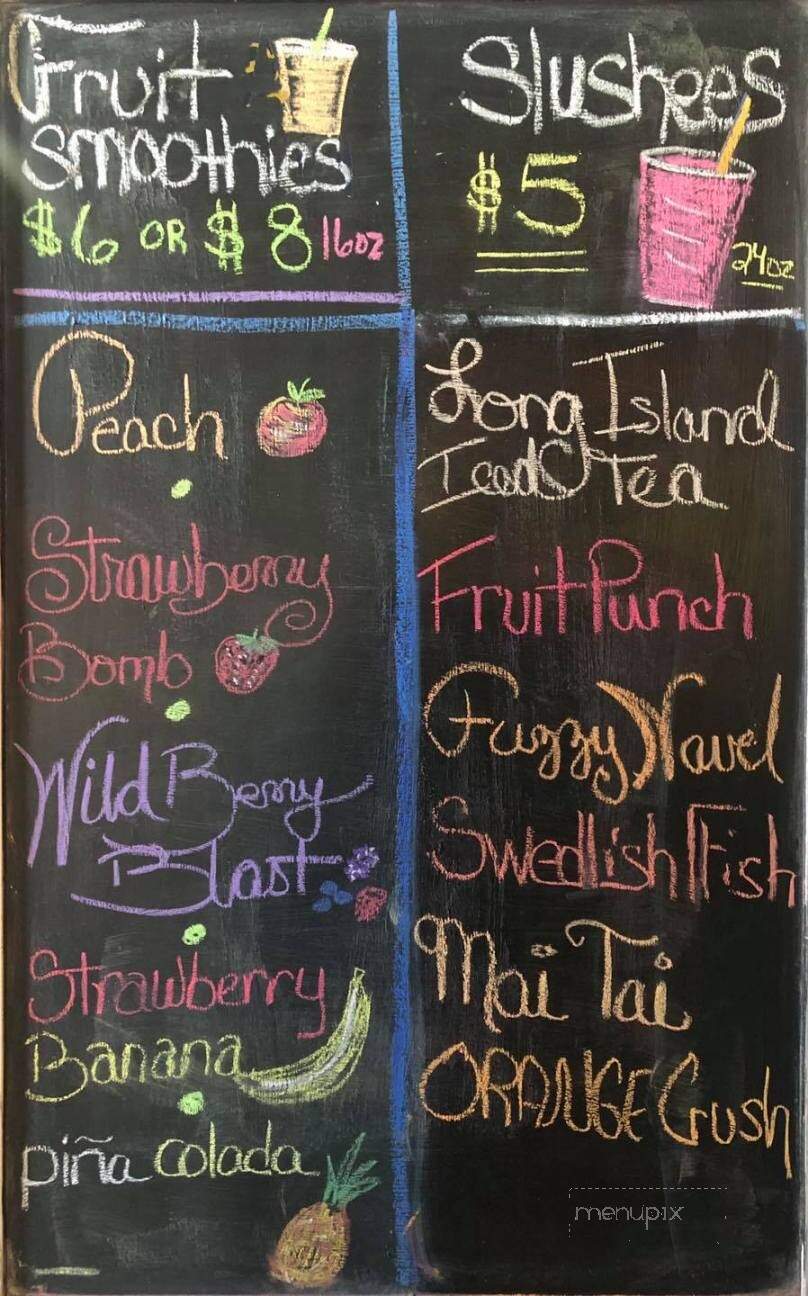 Fruit
smoothies
$6 OR $8 16oz
Peach
Strawberry
Bomb
Wild Berry
Blast
Strawberry
Banana
piña colada
Slushees
$5
24oz
Long Island
Iced Tea
Fruit Punch
Fuzzy Navel
Swedish Fish
Mai Tai
ORANGE Crush
menupix